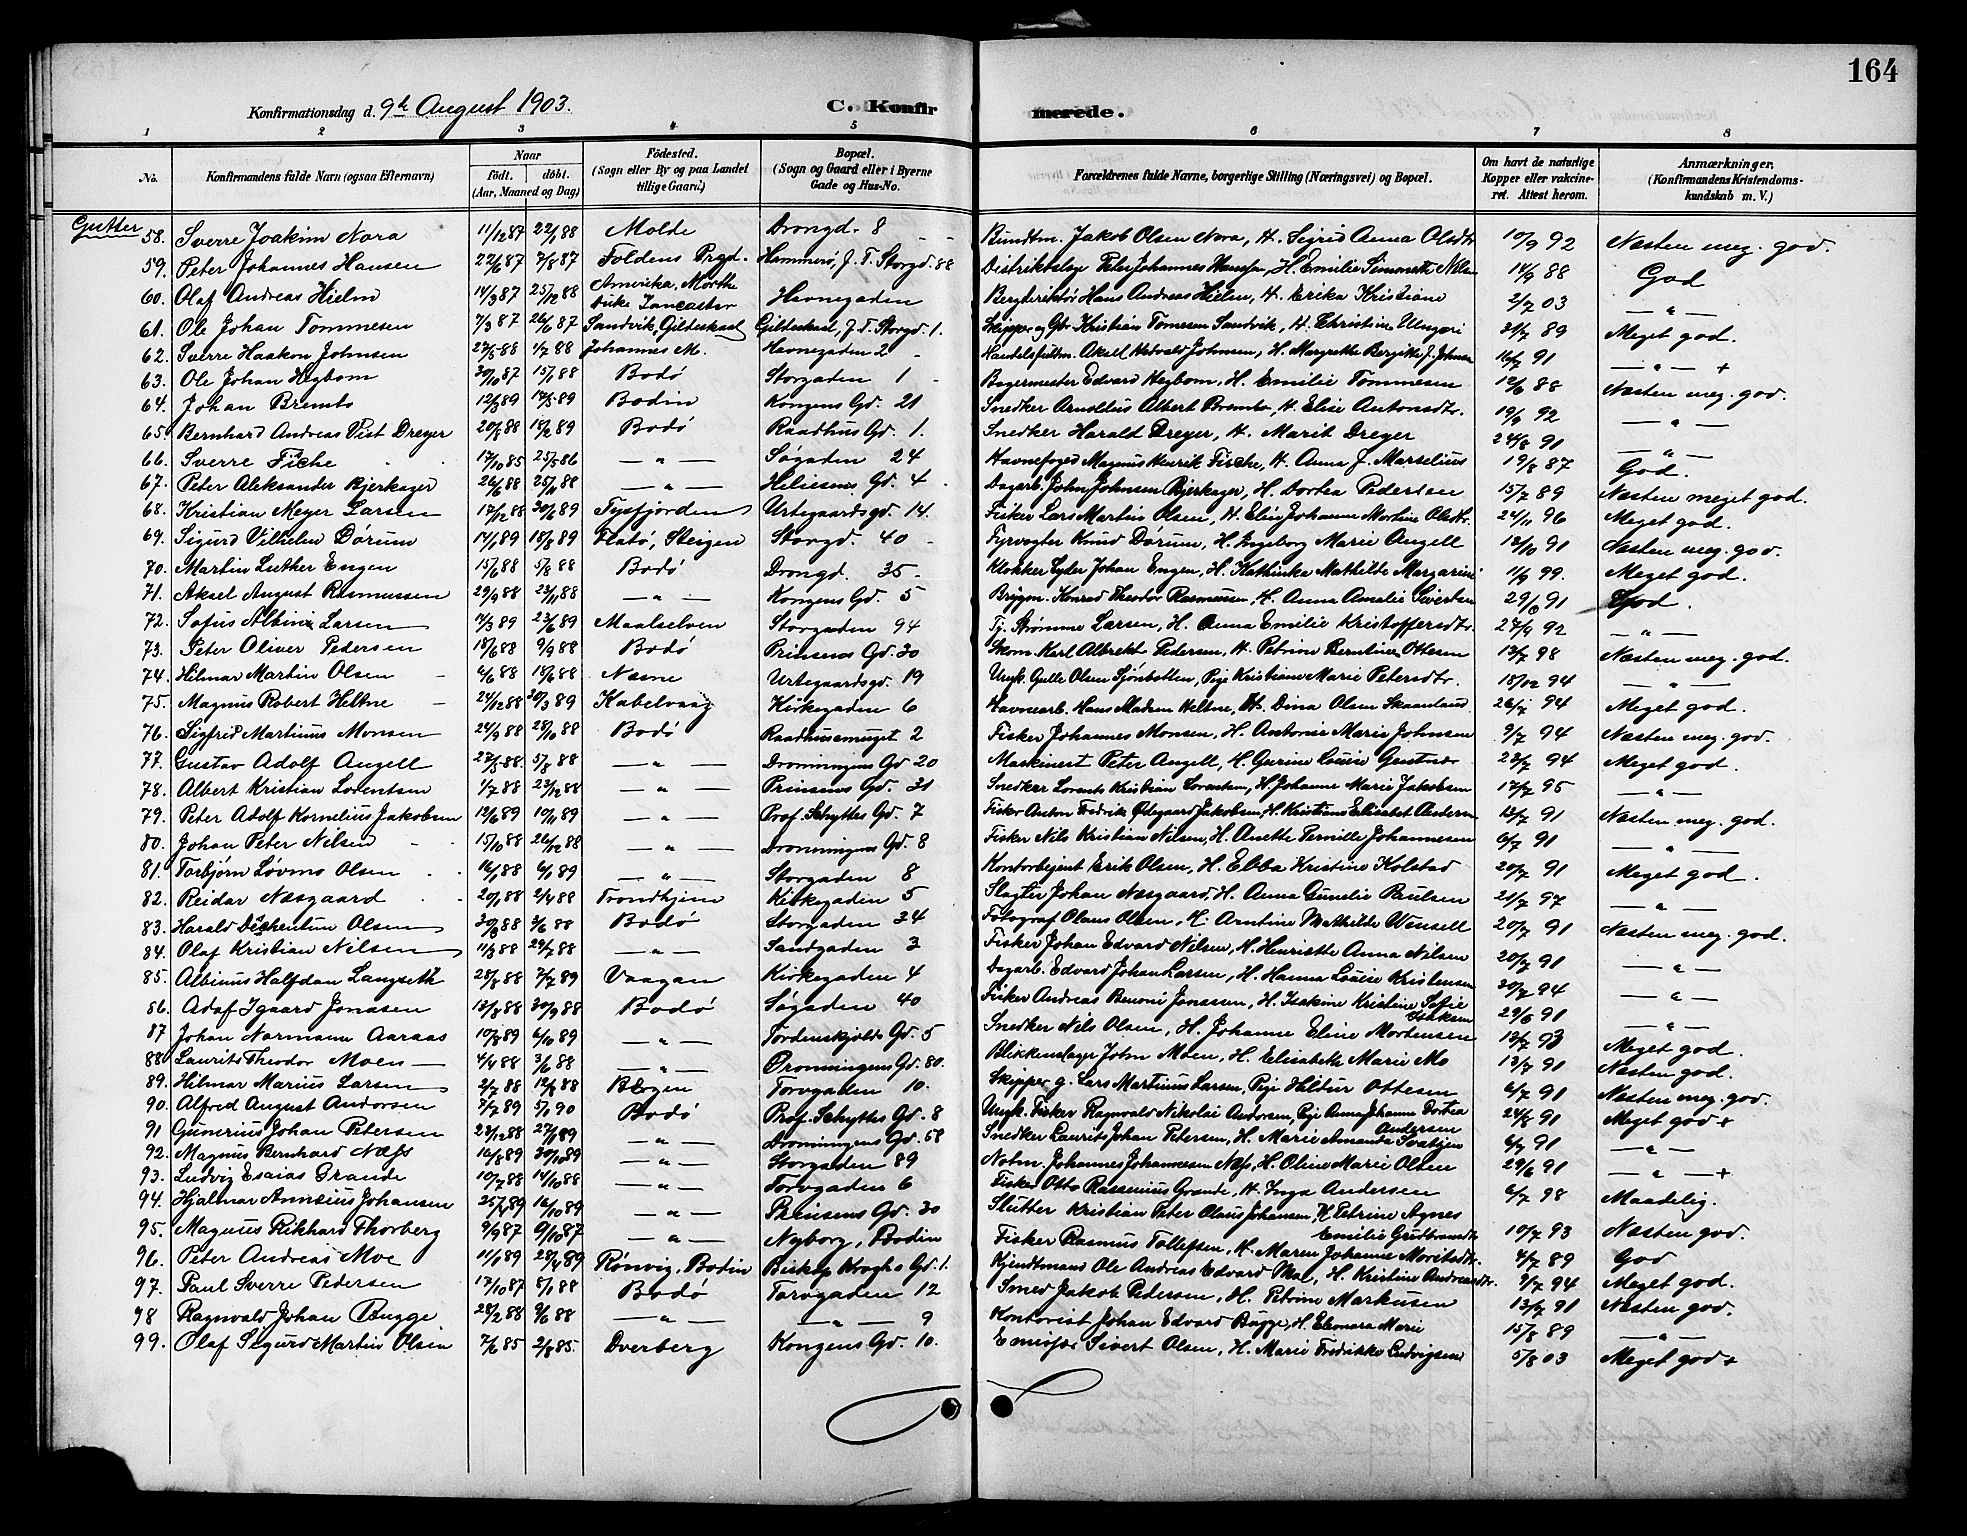 164
Konfirmationsdag d. 9de August 1903. C. Konfirmerede.
1 2 3 4 5 6 7 8
No. Konfirmandens fulde Navn (ogsaa Efternavn) Naar født. døbt. (Aar, Maaned og Dag) Fødested. (Sogn eller By og paa Landet tillige Gaard.) Bopæl. (Sogn og Gaard eller i Byerne Gade og Hus-No. Forældrenes fulde Navne, borgerlige Stilling (Næringsvei) og Bopæl. Om havt de naturlige Kopper eller vakcineret. Attest herom. Anmærkninger. (Konfirmandens Kristendomskundskab m. V.)
Gutter
58. Sverre Joakim Nora 11/12 87 22/1 88 Molde Drongd. 8 Bundtm. Jakob Olsen Nora, H. Sigrid Anna Olsdtr 10/9 92 Næsten meg. god.
59. Peter Johannes Hansen 22/6 87 7/8 87 Foldens Prgd. Hammerø, J. T. Storgd. 88 Distriktslæge Peter Johannes Hansen, H. Emilie Simonette 14/9 88 God
60. Olaf Andreas Hielm 14/9 87 25/12 88 Lancaster Havnegaden Bergdirektør Hans Andreas Hielm, H. Erika Kristiane 2/7 03 — " —
61. Ole Johan Tommesen 7/3 87 26/6 87 Sandvik, Gildeskaal Gildeskaal, J. T. Storgd. 1. Skipper og Gbr. Kristian Tomesen Sandvik, H. Christine 31/7 89 Meget god.
62. Sverre Haakon Johnsen 27/5 88 1/7 88 Johannes M. Havnegaden 2 Handelsfuldm. Aksel Hedvald Johnsen, H. Margrethe Bergitte J. Johnsen 16/7 91 — " — +
63. Ole Johan Hegbom 30/10 87 15/1 88 Bodø Storgaden 1 Bagermester Edvard Hegbom, H. Emilie Tommesen 12/6 88 Næsten meg. god.
64. Johan Brembo 12/3 89 17/5 89 Bodin Kongens Gd. 21 Snedker Arnoldus Albert Brembo, H. Elise Antonsdtr. 19/9 92 — " —
65. Bernhard Andreas Vist Dreyer 20/8 88 18/2 89 Bodø Raadhus Gd. 1. Snedker Harald Dreyer, H. Marit Dreyer 24/8 91 — " —
66. Sverre Fiche 17/10 85 25/5 86 — " — Søgaden 24 Havnefoged Magnus Henrik Fische, H. Anna J. Marselius 19/8 87 God.
67. Peter Aleksander Bjerkager 26/6 88 25/11 88 — " — Heliesens Gd. 4 Dagarb. John Johnsen Bjerkager, H. Dortea Pedersen 15/7 89 Næsten meget god.
68. Kristian Meyer Larsen 17/12 88 30/6 89 Tysfjorden Urtegaardsgd. 14. Fisker Lars Martin Olsen, H. Elen Johanne Martine Olsdtr. 24/11 96 Meget god.
69. Sigurd Vilhelm Dørum 14/1 89 18/8 89 Flatø, Steigen Storgd. 40 Fyrvogter Knud Dørum, H. Ingeborg Marie Angell 12/10 91 Næsten meg. god.
70. Martin Luther Engen 15/6 88 5/8 88 Bodø Drongd. 35 Klokker Lyder Johan Engen, H. Kathinka Mathilde Margarine 11/9 99. Meget god.
71. Aksel August Rasmussen 29/9 88 23/11 88 — " — Kongens Gd. 5 Brygm. Konrad Theodor Rasmussen, H. Anna Amalie Sivertsen 29/6 91 God.
72. Sofus Albin Larsen 11/3 89 23/6 89 Maalselven Storgaden 94 Tj. Strømme Larsen, H. Anna Emilie Kristoffersdtr. 27/9 92 — " —
73. Peter Oliver Pedersen 18/6 88 9/9 88 Bodø Prinsens Gd. 30 Skom. Karl Albrekt Pedersen, H. Petrine Berntine Ottesen 13/7 98 Næsten meg. god.
74. Hilmar Martin Olsen 6/6 88 18/6 88 Næsne Urtegaardsgd. 19 Ungk. Gulle Olsen Sjønbotten, Pige Kristiane Marie Petersdtr. 18/12 94 — " —
75. Magnus Robert Heltne 24/12 88 30/3 89 Kabelvaag Kirkegaden 6 Havnearb. Hans Madsen Heltne, H. Dina Olsen Skaanland 26/7 94 Meget god.
76. Sigfrid Martinus Monsen 24/9 88 28/10 88 Bodø Raadhussmuget 2 Fisker Johannes Monsen, H. Antonie Marie Johnsen 9/7 94 Næsten meg. god.
77. Gustav Adolf Angell 27/5 88. 5/8 88 — " — Dronningens Gd 20 Maskinist Peter Angell, H. Gurine Louise 23/7 94 Meget god.
78. Albert Kristian Lorentsen 1/7 88 23/12 88 — " — Prinsens Gd. 31 Snedker Lorents Kristian Lorentsen, H. Johanne Marie Jakobsen 17/7 95 — " —
79. Peter Adolf Kornelius Jakobsen 12/6 89 10/11 89 — " — Prof. Schyttes Gd. 7 Fisker Anton Fredrik Ødegaard Jakobsen, H. Kristiane Elisabet Andersen 12/7 91 Næsten meg. god.
80. Johan Peter Nilsen 15/10 88 26/12 88 — " — Dronningens Gd. 8 Fisker Nils Kristian Nilsen, H. Anette Pernille Johannesen 6/7 91 — " —
81. Torbjørn Løvmo Olsen 16/1 88 6/1 89 — " — Storgaden 8 Kontorbetjent Erik Olsen, H. Ebba Kristine Kolstad 20/7 91 Meget god.
82. Reidar Næsgaard 20/1 88 2/4 88 Trondhjem Kirkegaden 5 Slagter Johan Næsgaard, H. Anna Gunelie Paulsen 21/7 97 — " —
83. Harald Olsen 30/3 88 3/6 88 Bodø Storgaden 34 Fotograf Olaus Olsen, H. Arntine Mathilde Wensell 20/7 91 Næsten meg. god.
84. Olaf Kristian Nilsen 11/3 88 29/7 88 — " — Sandgaden 3 Fisker Johan Edvard Nilsen, H. Henriette Anna Nilsen 20/7 91 — " —
85. Albinus Halfdan Langseth 28/8 88 7/7 89 Vaagan Kirkegaden 4 Dagarb. Edvard Johan Larsen, H. Hanna Louise Kristensen 20/7 94 — " —
86. Adolf Igaard Jonasen 12/8 88 30/9 88 Bodø Søgaden 40 Fisker Andreas Benoni Jonassen, H. Isakine Kristine Sofie Isaksen 29/6 91 — " —
87 Johan Normann Aaraas 10/8 89 6/10 89 — " — Tordenskjolds Gd. 5 Snedker Nils Olsen, H. Johanne Eline Mortensen 13/7 93 Meget god.
88. Laurits Theodor Moen 4/4 88 3/6 88 — " — Dronningens Gd. 80. Blikkenslager John Moen, H. Elisabeth Marie Mo 13/7 91 Næsten god.
89. Hilmar Marius Larsen 2/7 88 12/8 88 Bergen Torvgaden 10. Skipper g. Lars Martinus Larsen, Pige Hildur Ottesen 6/7 91 Næsten meg. god.
90. Alfred August Andersen 3/7 89 5/1 90 Bodø Prof. Schyttes Gd. 8 Ungk. Fisker Ragnvald Nikolai Andersen, Pige Anna Johanna Dortea Andersen 24/8 91 Meget god +
91 Gunerius Johan Petersen 23/12 88 27/1 89 — " — Dronningens Gd. 58 Snedker Laurits Johan Petersen, H. Marie Amanda Svartjen 6/7 91 — " —
92. Magnus Bernhard Næss 16/8 89 30/10 89 — " — Storgaden 89 Notm. Johannes Johannesen Næss, H. Oline Marie Olsen 29/6 91 — " — +
93. Ludvig Esaias Grande 10/7 88 14/10 88 — " — Torvgaden 6 Fisker Otto Rassenius Grande, H. Inga Andersen 6/7 98 Maadelig.
94. Hjalmar Annæus Johansen 25/7 89 16/10 89 — " — Prinsens Gd. 30 Slutter Kristian Peter Olaus Johansen, H. Petrine Agnes Emilie Gudbrandtr. 10/7 93 Næsten god.
95. Magnus Rikhard Thorberg 9/9 87 9/10 87 — " — Nyborg, Bodin Fisker Rasmus Tollefsen, H. Maren Johanne Moritsdtr. 4/7 89 God
96. Peter Andreas Moe 11/1 89 28/4 89 Rønvig, Bodin Biskop Kroghs Gd. 1. Kjendtmand Ole Andreas Edvard Moe, H. Kristine Andreasdtr. 9/7 94 Meget god.
97. Paul Sverre Pedersen 17/10 87 8/1 88 Bodø Torvgaden 12 Smed Jakob Pedersen, H. Petrine Markusen 13/7 91 Næsten god.
98 Ragnvald Johan Bugge 28/2 88 9/6 88 — " — — " — 9 Kontorist Johan Edvard Bugge, H. Eleonora Marie 15/8 89 — " —
99. Olaf Sigurd Martin Olsen 7/6 85 2/8 85. Dverberg Kongens Gd. 10. Sivert Olsen, H. Marie Fredrikke Ludvigsen 5/8 03 Meget god +